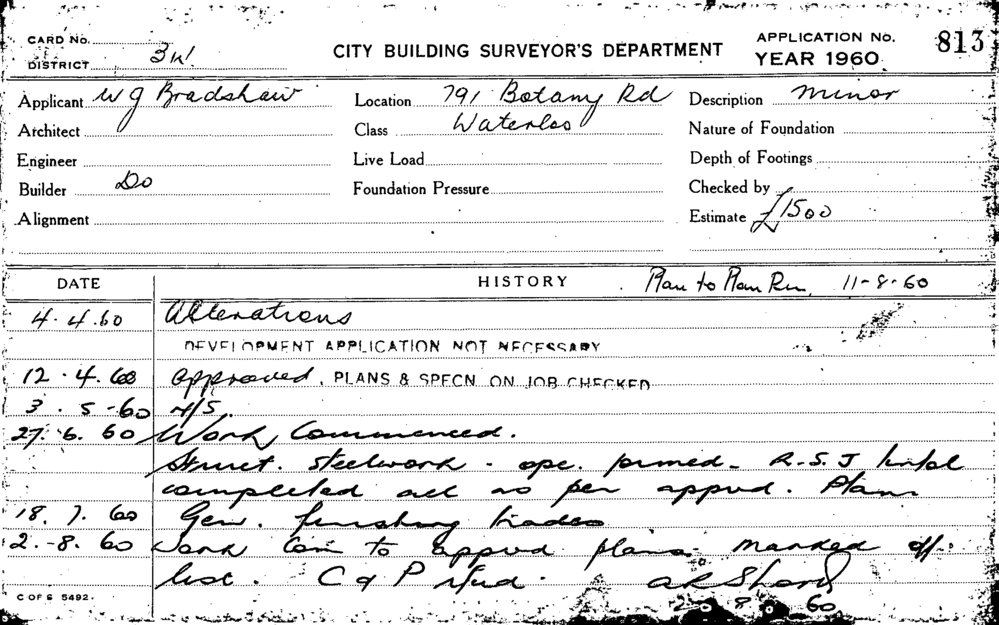 CARD No.
DISTRICT 3W
CITY BUILDING SURVEYOR'S DEPARTMENT
APPLICATION No. 813
YEAR 1960
Applicant W G Bradshaw
Location 791 Botany Rd
Description minor
Architect
Class Waterloo
Nature of Foundation
Engineer
Live Load
Depth of Footings
Builder Do
Foundation Pressure
Checked by
Alignment
Estimate £1500
DATE
HISTORY
Plan to Plan Rm 11-8-60
4.4.60 Alterations
DEVELOPMENT APPLICATION NOT NECESSARY
12.4.60 Approved. PLANS & SPECN ON JOB CHECKED
3.5-60 N/S.
27.6.60 Work Commenced.
Struct. steelwork - ope. formed - R.S.J lintol
completed all as per apprvd. Plans
18.7.60 Gen. finishing trades
2.-8.60 Work Com to apprvd plans marked off
list. C & P
2 8 60
C OF S 5492.